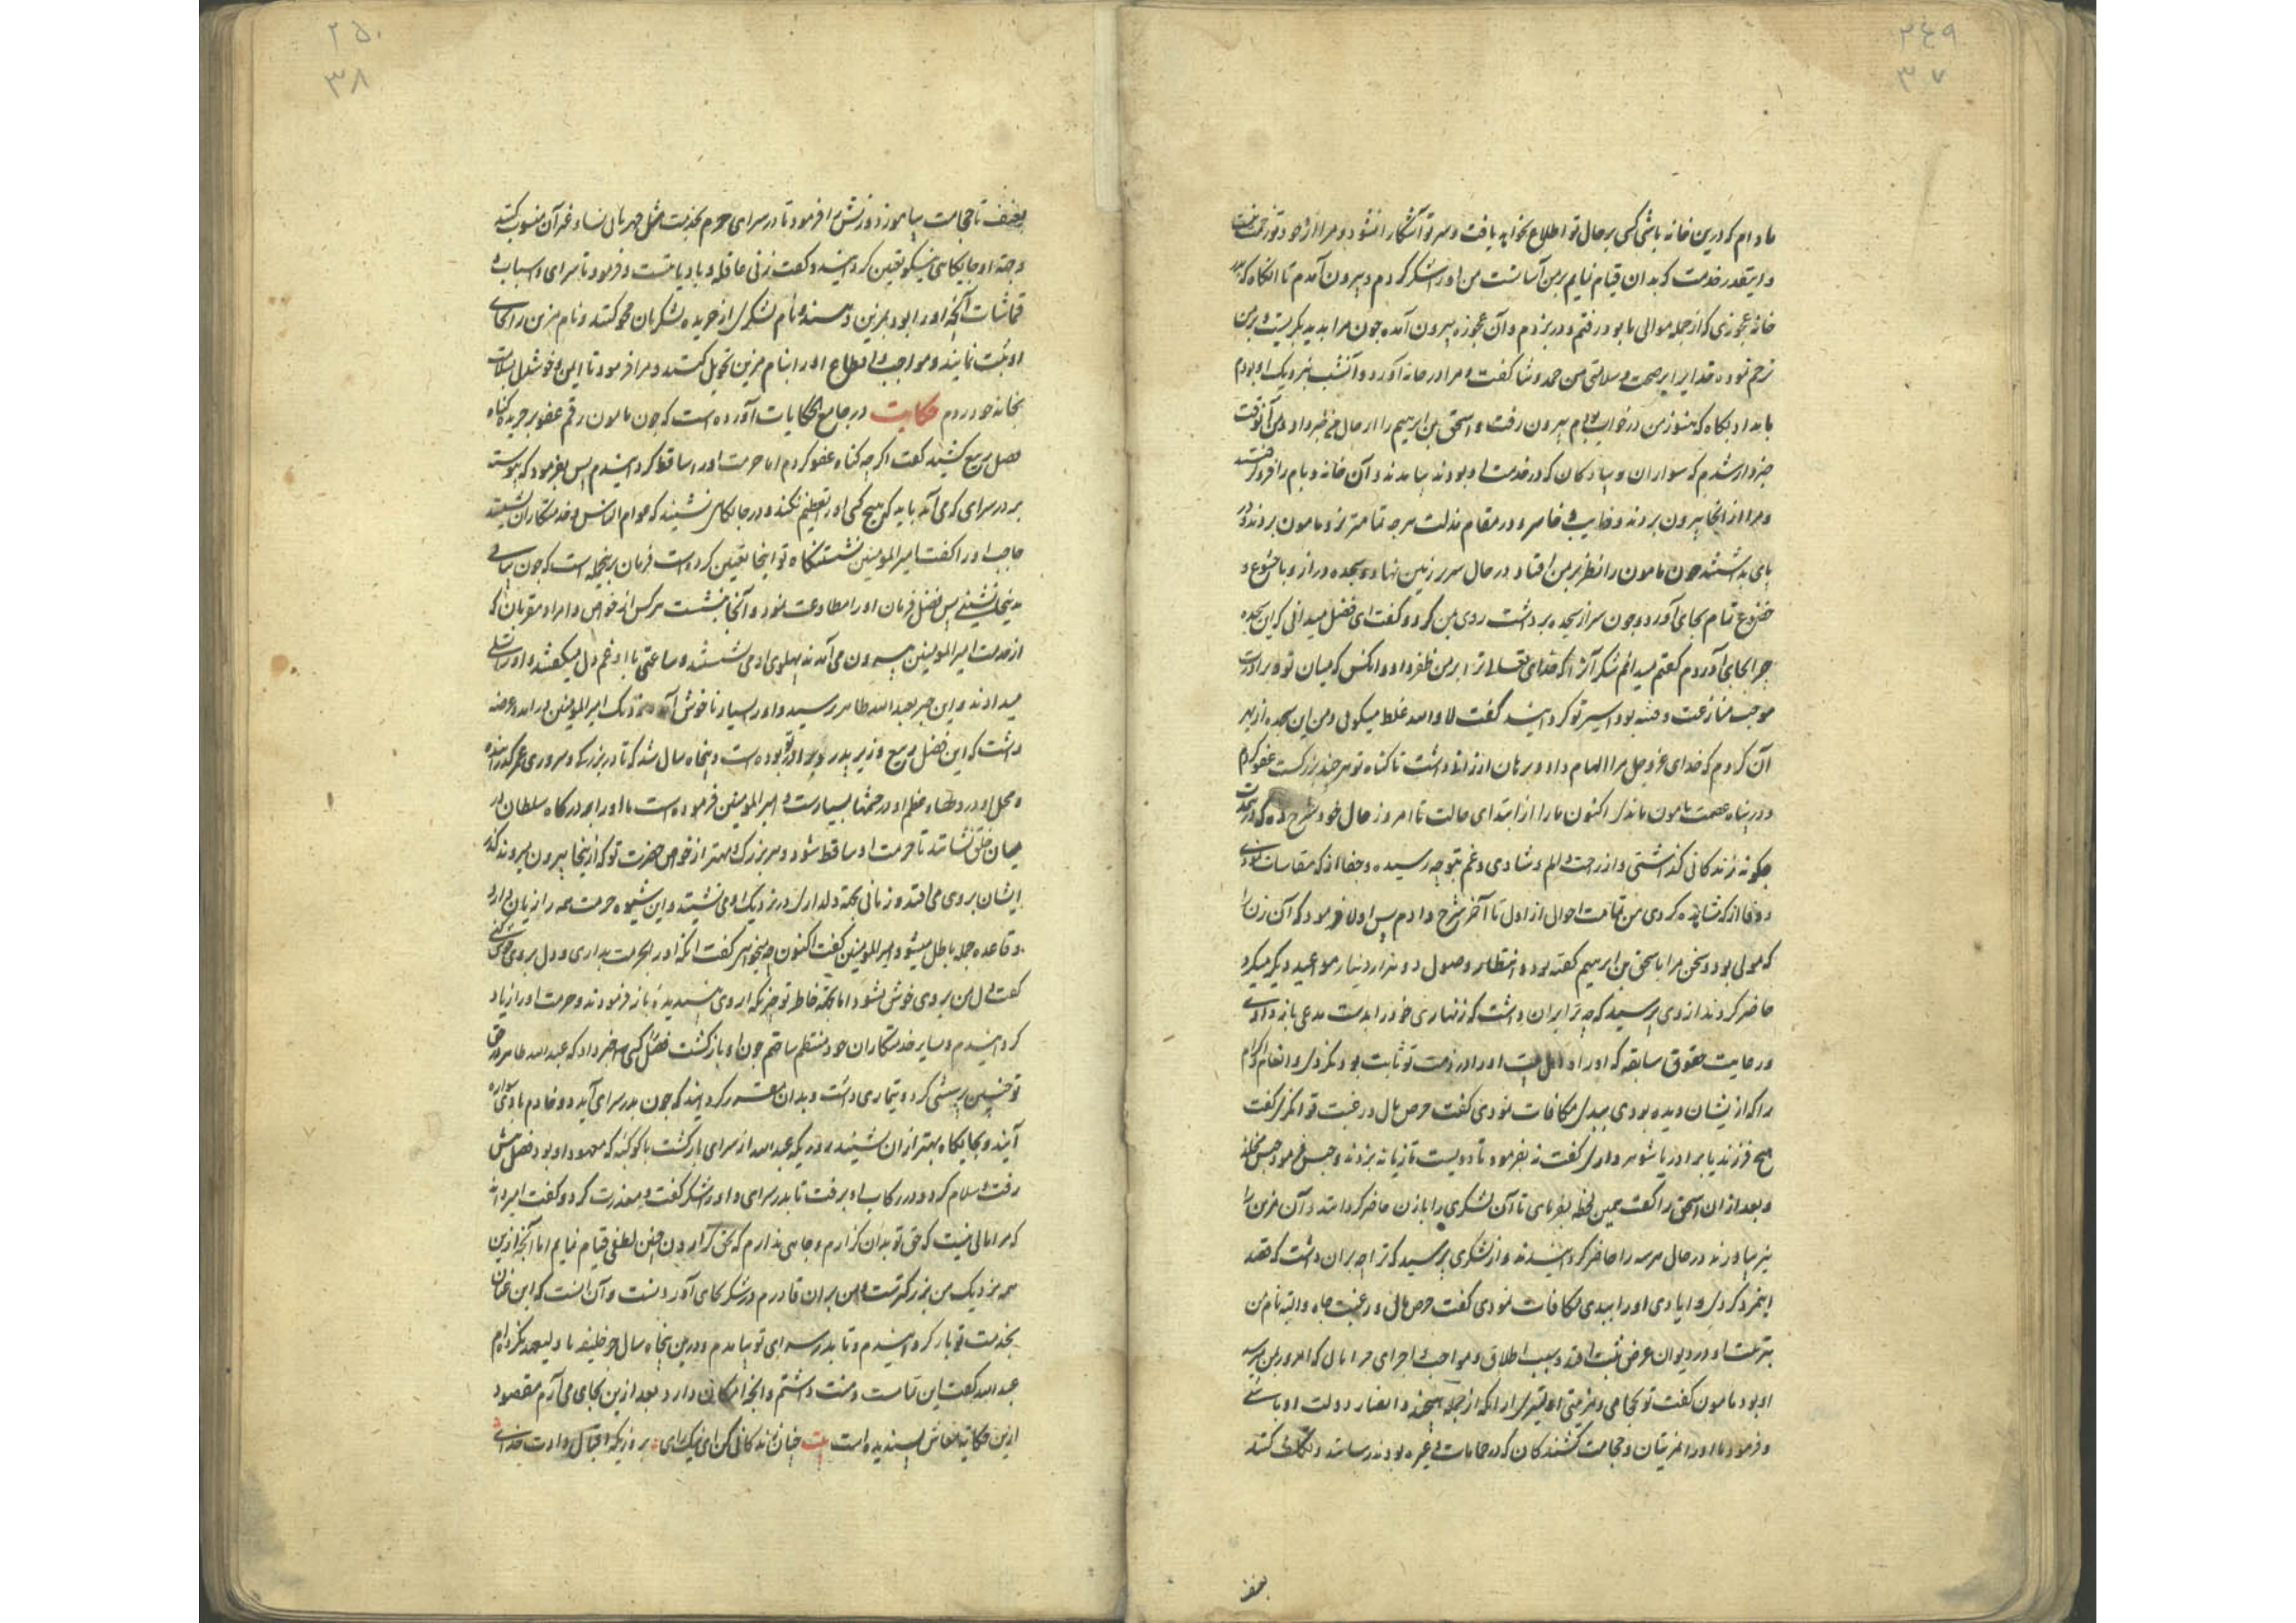 ۲۴۹
۳۷
مادام که درین خانه باشی کسی بر حال تو اطلاع نخواهد یافت و سر تو آشکارا نشود و مرا از وجود تو زحمت نیست
و اینقدر خدمت که بدان قیام نمایم بر من آسانست من او را شکر کردم و بیرون آمدم تا آنگاه که
خانه عجوزی که از جمله موالی ما بود رفتم و در بزدم و آن عجوزه بیرون آمده چون مرا بدید بگریست و بر من
ترحم نموده خدایرا بر صحت و سلامتی من حمد و ثنا گفت و مرا در خانه آورد و آنشب نزدیک او بودم
بامداد بگاه که هنوز من در خواب بودم بیرون رفت و اسحق بن ابرهیم را از حال من خبر داد و من آنوقت
خبردار شدم که سواران و پیادگان که در خدمت او بودند بیامدند و آن خانه و بام را فرو گرفتند
و مرا از آنجا بیرون بردند و خایب و خاسر و در مقام مذلت هر چه تمامتر نزد مامون بردند و بر
پای بداشتند چون مامون را نظر بر من افتاد در حال سر بر زمین نهاد و سجده دراز و با خشوع و
خضوع تمام بجای آورد و چون سر از سجده برداشت روی بمن کرد و گفت ای فضل میدانی که این سجده
چرا بجای آوردم گفتم میدانم شکر آنرا که خدای تعالی ترا بر من ظفر داد و آنکس که میان تو و برادرت
موجب منازعت و فتنه بود اسیر تو گردانید گفت لا والله غلط میگویی و من این سجده از بهر
آن کردم که خدای عز و جل مرا الهام داد و بر من ارزانی داشت تا گناه تو هر چند بزرگست عفو کردم
و در پناه عصمت مامون ماندی اکنون ما را از ابتدای حالت تا امروز حال خود شرح ده که درین مدت
چگونه زندگانی گذاشتی و از راحت و الم و شادی و غم بتو چه رسیده و جفا از که مقاسات نمودی
و وفا از که مشاهده کردی من تمامت احوال از اول تا آخر شرح دادم پس اولا فرمود که آن زن را
که مولی بود و سخن مرا با سحق بن ابرهیم گفته بود و انتظار وصول دو هزار دینار مواعید دیگر میکرد
حاضر کردند از وی پرسید که چه ترا بران داشت که زنهاری خود را بدست مدعی باز دادی
و رعایت حقوق سابقه که او را و اهل بیت او را در ذمت تو ثابت بود نکردی و انعام و اکرام
را که از ایشان دیده بودی ببدی مکافات نمودی گفت حرص مال و رغبت تو انگری گفت
هیچ فرزند یا برادر یا شوهر داری گفت نه بفرمود تا دویست تازیانه بزدند و حبس فرمود حبس مخلد
و بعد از ان اسحق را گفت همین لحظه بفرمای تا آن لشکری را با زن حاضر گردانند و آن مزین را
نیز بیاورند در حال هر سه را حاضر گردانیدند و از لشکری پرسید که ترا چه بران داشت که قصد
اینمرد کردی و ایادی او را ببدی مکافات نمودی گفت حرص مال و رغبت جاه و البته نام من
بتربیت او در دیوان عرض ثبت افتد و سبب اطلاق و مواجب و اجرای مرا مالی که امروز بمن میرسد
او بود مامون گفت تو بحجامی و مزینی اولیتری از آنکه از جمله و انصار دولت او باشی
و فرمود تا او را بمزینان و حجامت کنندگان که در حمامات و غیره بودند رسانند و تکلیف کنند
بعنف
۲۵۰
۳۸
بعنف تا حجامت بیاموزد و زنش را فرمود تا در سرای حرم بخدمت مثل مهربانی نساء و غیر آن منسوب کنند
و جهت او جایگاهی نیکو تعیین گردانید و گفت زنی عاقله و با دیانتست و فرمود تا سرای و اسباب و
قماشات آنچه او را بود بمزین دهند و نام لشکری از جریده لشکریان محو کنند و نام مزین را بجای
او ثبت نمایند و مواجب و اقطاع او را بنام مزین تحویل کنند و مرا فرمود تا ایمن و خوشدل بسلامت
بخانه خود روم حکایت در جامع الحکایات آورده است که چون مامون رقم عفو بر جریده گناه
فضل ربیع کشید گفت اگر چه گناه عفو کردم اما حرمت او را ساقط گردانیدم پس بفرمود که پیوسته
بر در سرای که می آید باید که هیچ کس او را تعظیم نکند و در جایگاهی نشیند که عوام الناس و خدمتکاران نشینند
حاجب او را گفت امیر المومنین نشستنگاه تو اینجا تعیین کرده است فرمان برینجمله است که چون بیایی
بدینجا نشینی پس فضل فرمان او را مطاوعت نمود و آنجا بنشست هر کس از خواص و امرا و مقربان که
از خدمت امیر المومنین بیرون می آمدند بپهلوی او می نشستند و ساعتی با او غم دل میگفتند و او را تسلی
میدادند و این خبر بعبد الله طاهر رسید و او را بسیار ناخوش آمد نزدیک امیر المومنین در آمد و عرضه
داشت که این فضل ربیع وزیر پدر و برادر تو بوده است و پنجاه سال شد که تا در بزرگی و سروری عمر گذرانیده
و محل او در دلها و عظم او در چشمها بسیارست و امیر المومنین فرموده است تا او را بر درگاه سلطان در
میان خلق نشانند تا حرمت او ساقط شود و هر بزرگ و مهتر از خواص حضرت تو که از ینجا بیرون میروند گذر
ایشان بروی می افتد و زمانی بجهت دلداری در نزدیک او می نشینند و این شیوه حرمت همه را زیان دارد
و قاعده جمله باطل میشود امیر المومنین گفت اکنون چه میخواهی گفت آنکه او را بحرمت بداری و دل بروی خوش کنی
گفت دل من بروی خوش نشود اما بجهت خاطر تو باز فرمودند و حرمت او را زیاد
گردانیدم و سایر خدمتکاران خود منتظم ساختم چون او بازگشت فضل را کسی خبر داد که عبد الله طاهر در حق
تو چنین پرسشی کرد و تیماری داشت و بدان مقرر گردانید که چون بدر سرای آید دو خادم با وی
آیند و بجایگاه بهتر از ان نشینند روزیکه عبد الله از سرای بازگشت با کوکبه که معهود او بود فضل پیش
رفت و سلام کرد و در رکاب او برفت تا بدر سرای و او را شکر گفت و معذرت کرد و گفت امیر داند
که مرا مالی نیست که حق تو بدان گزارم و جاهی ندارم که بحق گزاردن چنین لطفی قیام نمایم اما آنچه ازین
همه نزدیک من بزرگترست و من بران قادرم در شکر بجای آوردنست و آن آنست که این عنان
بخدمت تو باز گردانیدم و تا بدر سرای تو بیامدم و درین پنجاه سال جز خلیفه یا ولیعهد نکرده ام
عبد الله گفت این تمامست و منت داشتم و آنچه امکان دارد بعد ازین بجای می آرم مقصود
ازین حکایت پسندیده است بیت چنان زندگانی کن ای نیک رای بروزیکه اقبال دادت خدای